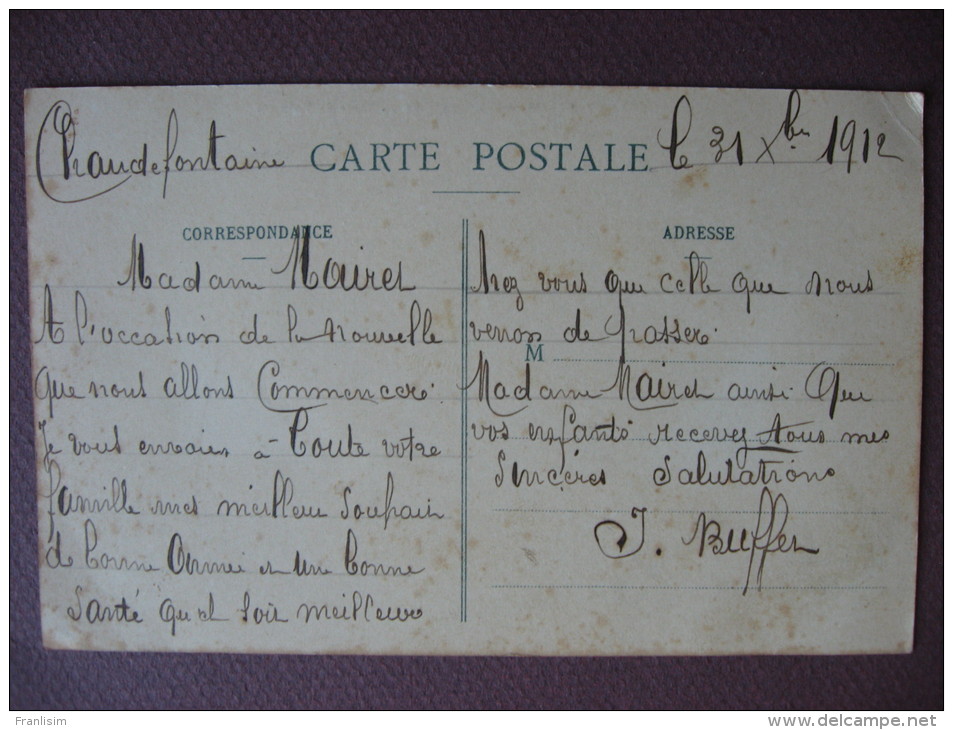 Chaudefontaine
CARTE POSTALE
le 31 Xbre 1912
CORRESPONDANCE
Madame Mairet
A l'occasion de la nouvelle
que nous allons Commencer
Je vous envoies à Toute votre
famille mes meilleur Souhait
de bonne Année et une bonne
Santé quel soit meilleure
ADRESSE
chez vous que celle que nous
venons de passer
M
Madame Mairet ainsi Que
vos enfants recevez tous mes
Sincères Salutations
J. Buffet
Franlisim
http://www.delcampe.net